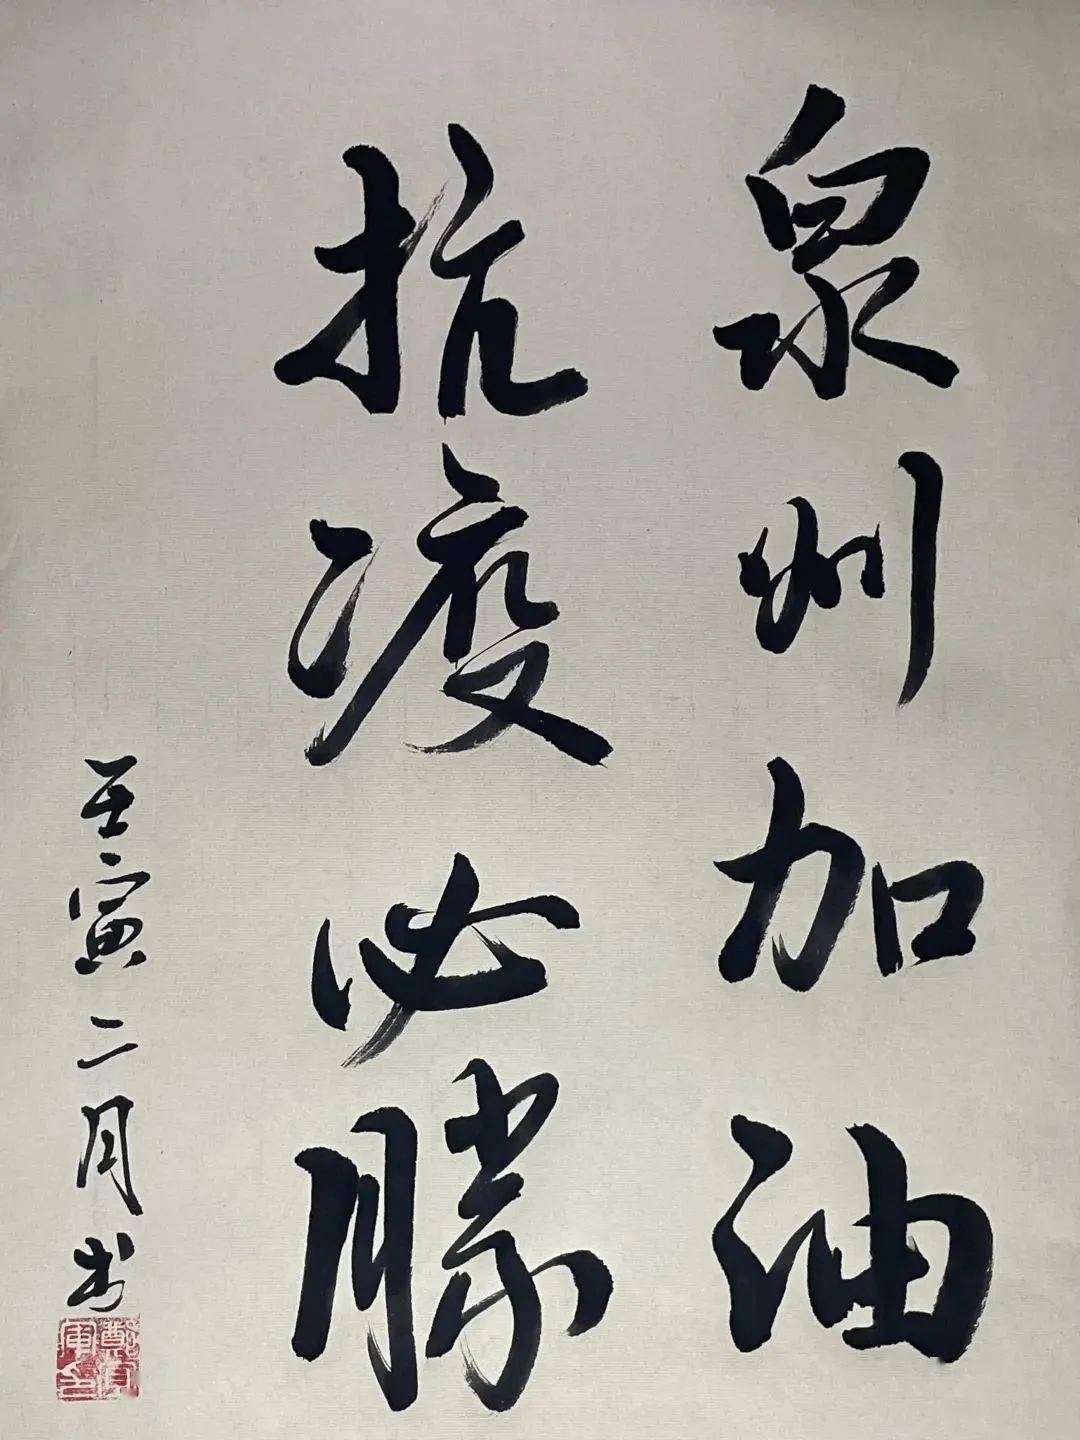 泉州加油
抗疫必勝
壬寅二月书